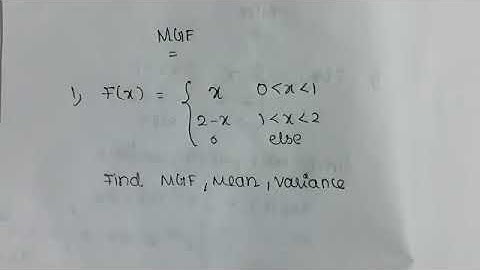 MGF
=
1, F(x) = { x 0<x<1
2-x 1<x<2
0 else
Find MGF, Mean, Variance